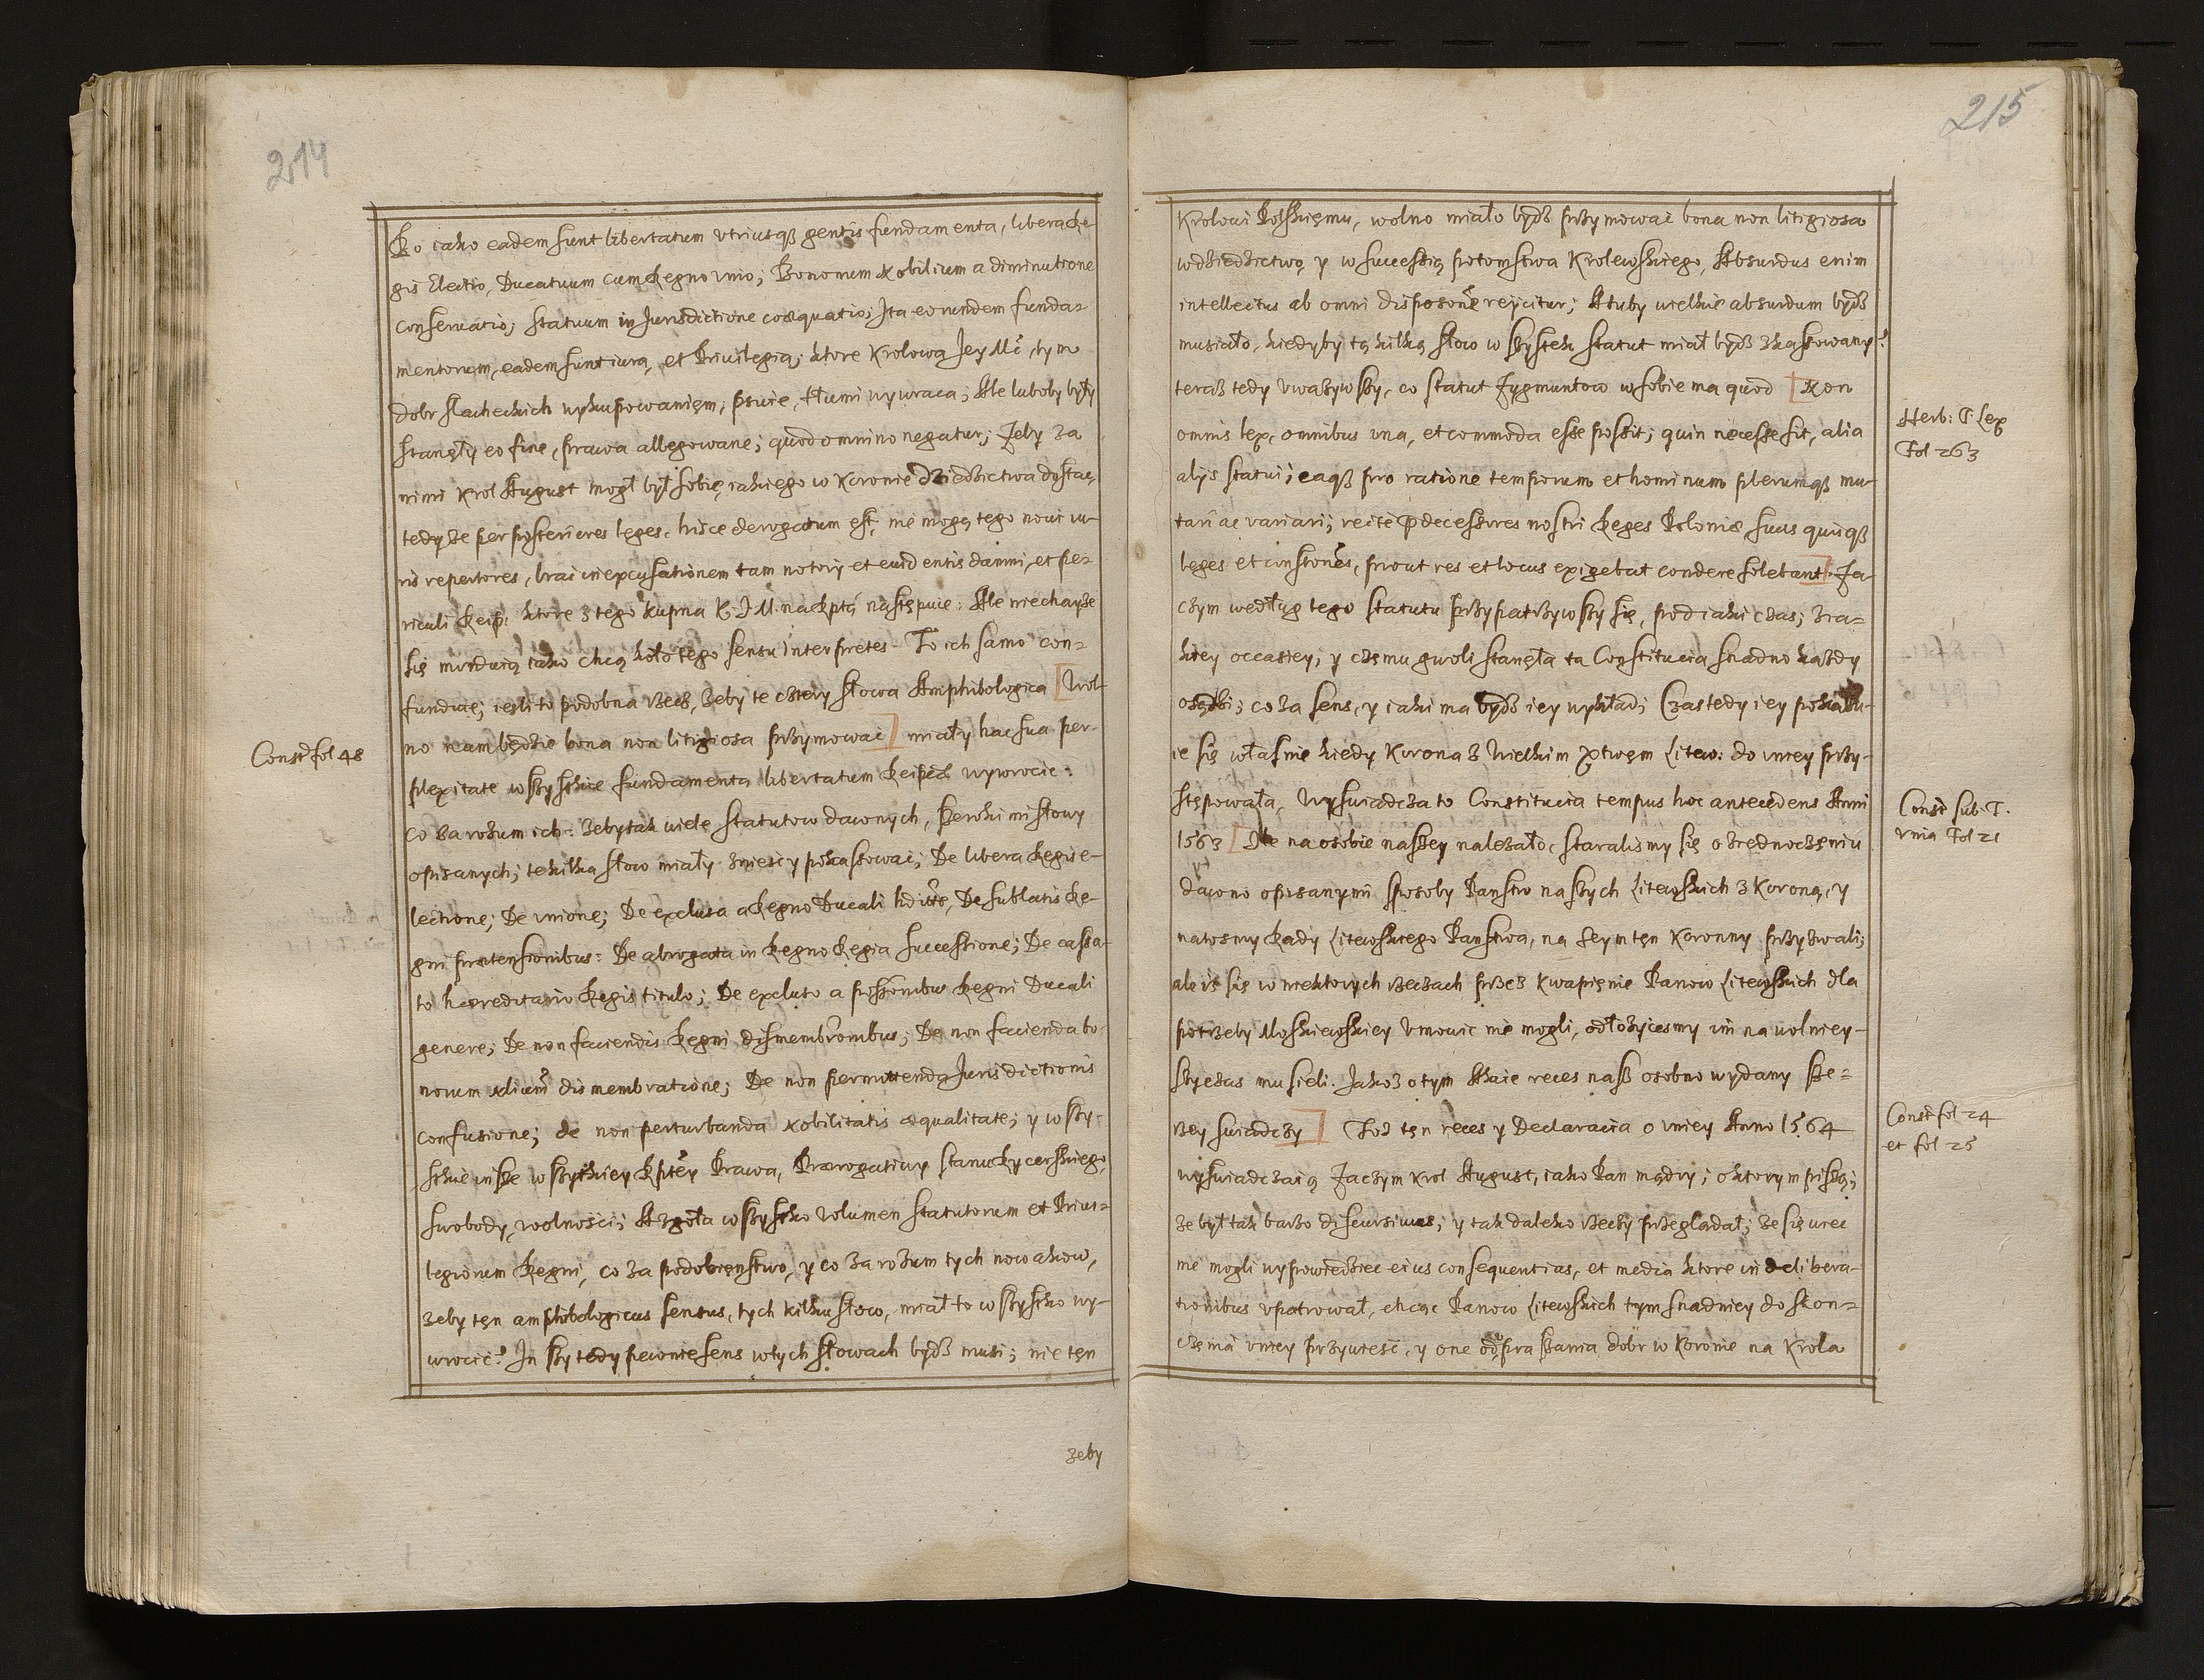 214
Bo iako eadem sunt libertatum vtriusqß gentis fundamenta, libera Re-
gis Electio, Ducatuum cum Regno vnio; Bonorum Nobilium a diminutione
conseruatio; statuum in Jurisdictione coæquatio; Ita eorundem funda=
mentorum, eadem sunt iura, et Priuilegia; ktore Krolowa Jey Mć, tym
dobr slacheckich wykupowaniem, psuie, tłumi wywraca; Ale luboby były
stanęły eo fine, prawa allegowane; quod omnino negatur; Zeby za
nimi Krol August mogł był sobie, iakiego w Koronie dziedzictwa dostać,
tedy że per posteriores leges, hisce derogatum est, nie mogą tego noui iu-
ris repertores, brać in excusationem tam notorÿ et euidentis damni, et pe=
riculi Reip: ktore z tego kupna K. J M. na Rptą następuie: Ale niechayże
się mordują iako chcą koło tego sensu interpretes. To ich samo con=
funduie; iesli to podobna rzecz, żeby te cztery słowa Amphibologica [Wol-
Const fol 48
no nam będzie bona non litigiosa przymować] miały hac sua per-
plexitate wszystkie fundamenta libertatum Reipcæ wywrocić:
co za rozum ich: żeby tak wiele statutow dawnych, szerokimi słowy
opisanych; te kilka słow miały znieść y pokassować; De libera Regis e-
lectione; De vnione; De exclusa a Regno Ducali hdite, De sublatis Re-
gni prætensionibus: De abrogata in Regno Regia successione; De cassa-
to hæreditario Regis titulo; De excluso a possonibus Regni Ducali
genere; De non faciendis Regni dismembronibus; De non facienda bo-
norum dismembratione; De non permittenda Jurisdictionis
confusione; de non perturbanda Nobilitatis æqualitate; y wszy-
stkie insze wszytkiey Rptey Prawa, Prærogatiwy stanu Rycerskiego,
swobody, wolności; A zgoła wszystko volumen statutorum et Priui=
legiorum Regni, co za podobieństwo, y co za rozum tych nowakow,
żeby ten amphibologicus sensus, tych kilku słow, miał to wszystko wy-
wrocić? Inszy tedy pewnie sens w tych słowach bydź musi; nie ten
zeby
215
Krolowi Polskiemu, wolno miało bydź przymować bona non litigiosa
w dziedzictwo y w successią potomstwa Krolewskiego, Absurdus enim
intellectus ab omni disposone reÿcitur; A tuby wielkie absurdum bydź
musiało, kiedyby tą kilką słow wszystek statut miał bydź zkassowany?
teraz tedy vważywszy, co statut Zygmuntow w sobie ma quod [Non
Herb: T. Lex
Fol 263
omnis lex, omnibus vna, et commoda esse possit; quin necesse sit, alia
alÿs statui; eaqß pro ratione temporum et hominum plerumqß mu-
tari ac variari; recte prædecessores nostri Reges Poloniæ, suas quisqß
leges et constones, prout res et locus exigebat condere solebant] Za-
czym według tego statutu przypatrzywszy się, pod iaki czas; z ia=
kiey occasiey; y czemu gwoli stanęła ta Constitucia snadno każdy
osądzi; co za sens, y iaki ma bydź iey wykład; Czas tedy iey pokazu-
ie się własnie kiedy Korona z Wielkim Xtwem Litew: do vniey przy-
stępowała, Wyswiadcza to Constitucia tempus hoc antecedens Anni
Const sub. T.
vnia Fol 21
1563 [Ile na osobie naszey należało, staralismy się o zrednoczeniu
dawno opisanymi sposoby Państw naszych Litewskich z Koroną, y
natosmy Rady Litewskiego Państwa, na Seym ten Koronny przyzwali;
ale iż się w niektorych rzeczach przez kwapienie Panow Litewskich dla
potrzeby Moskiewskiey vmowić nie mogli, odłożyćesmy im na wolniey-
szy czas musieli. Jakoż o tym Akcie reces nasz osobno wydany sze=
rzey swiadczy] Toż ten reces y Declaracia o vniey Anno 1564
Const fol 24
et fol 25
wyswiadczaią Zaczym Krol August, iako Pan mądry; o ktorym piszą;
że był tak barzo discursiuus; y tak daleko rzeczy przeglądał; że się wiec
nie mogli wypowiedziec eius consequentias, et media ktore in delibera-
tionibus vpatrował, chcąc Panow Litewskich tym snadniey do skon=
czenia vniey przywieść, y one od praszania dobr w Koronie na Krola